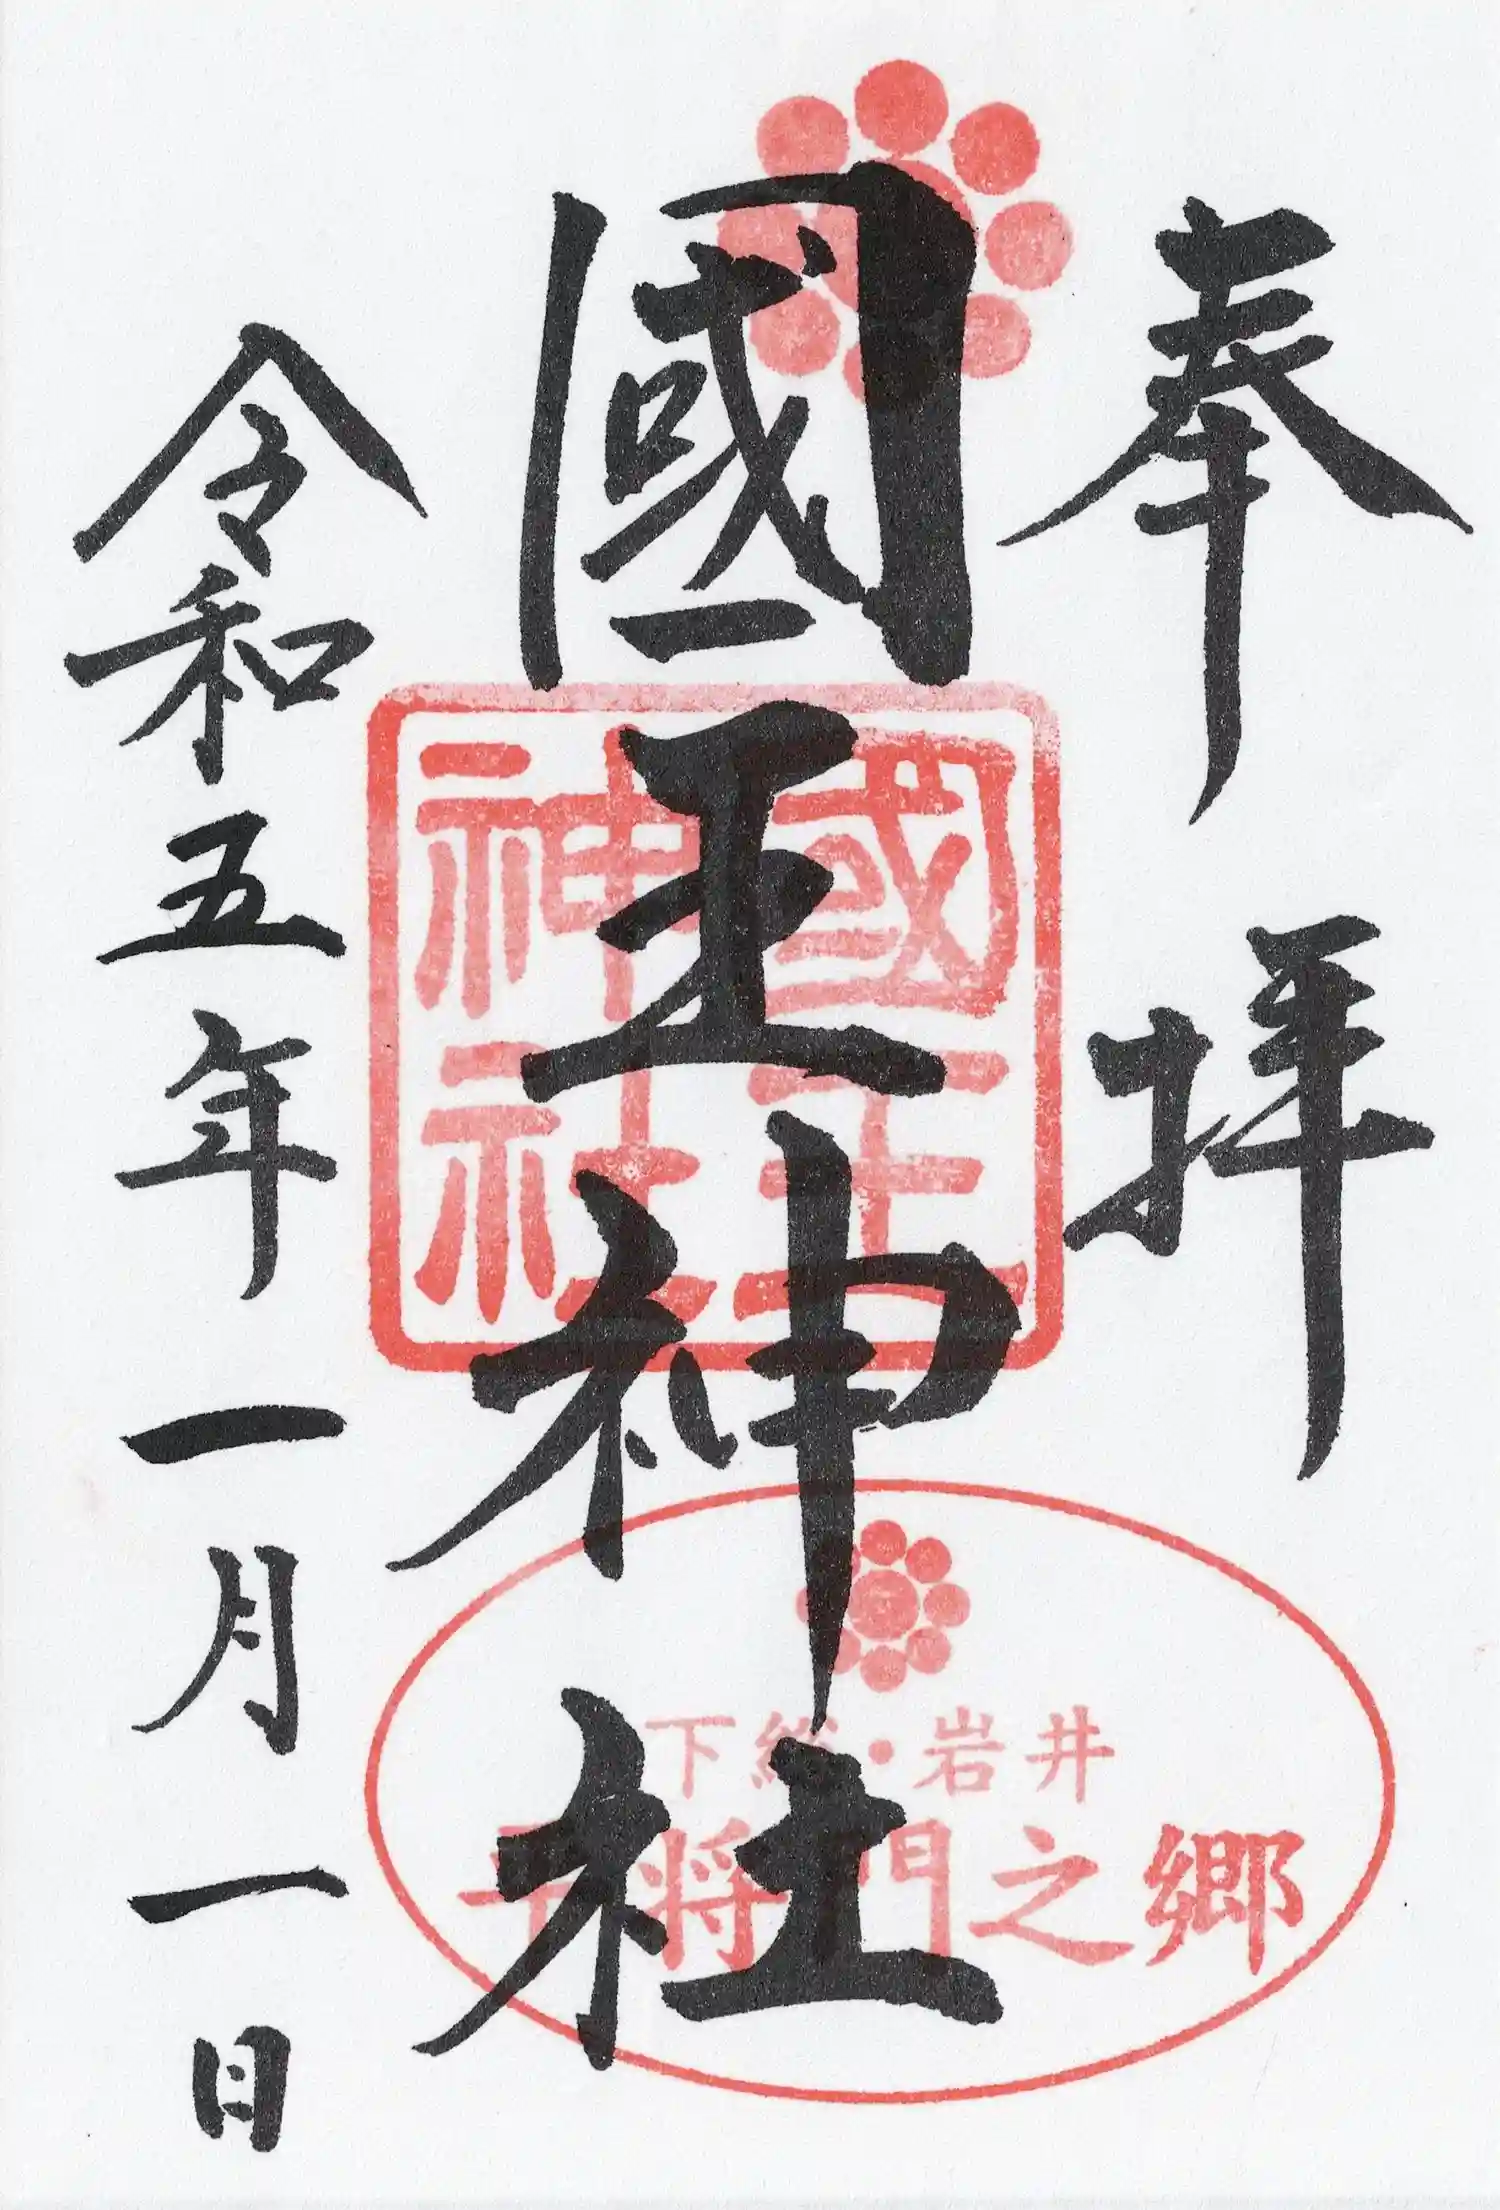 奉拝
國王神社
國王
神社
下総・岩井
平将門之郷
令和五年一月一日